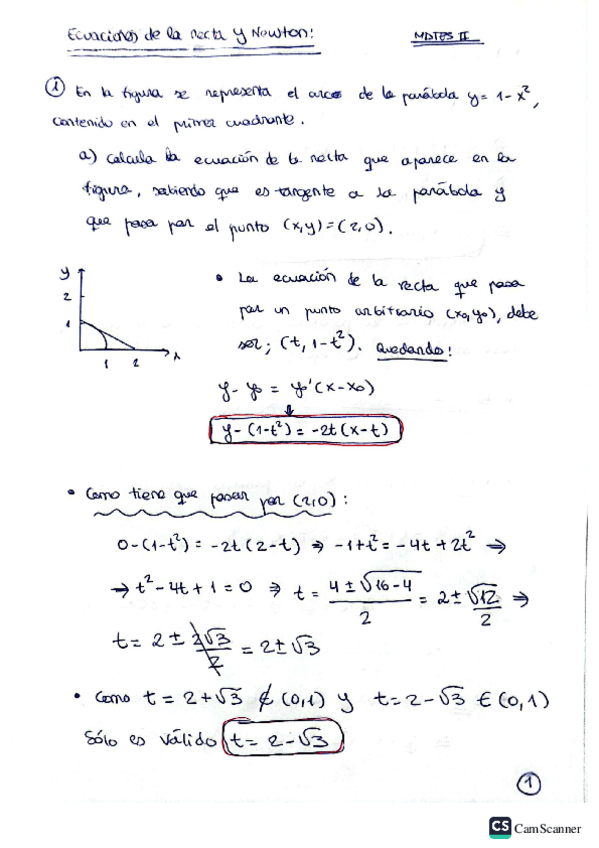 Ecuaciones de la recta y Newton!
MATES II
① En la figura se representa el arco de la parábola y = 1 - x²,
contenido en el primer cuadrante.
a) Calcula la ecuación de la recta que aparece en la
figura, sabiendo que es tangente a la parábola y
que pasa por el punto (x,y) = (2,0).
y
2
1
1 2 x
• La ecuación de la recta que pasa
por un punto arbitrario (x₀,y₀), debe
ser; (t, 1-t²). Quedando!
y - y₀ = y₀'(x - x₀)
↓
y - (1-t²) = -2t (x-t)
• Como tiene que pasar por (2,0):
0-(1-t²) = -2t (2-t) ⇒ -1+t² = -4t + 2t² ⇒
⇒ t² - 4t + 1 = 0 ⇒ t = (4 ± √(16-4))/2 = 2 ± √12/2 ⇒
t = 2 ± 2√3/2 = 2 ± √3
• Como t = 2+√3 ∉ (0,1) y t = 2-√3 ∈ (0,1)
Sólo es válido t = 2-√3
①
CS CamScanner